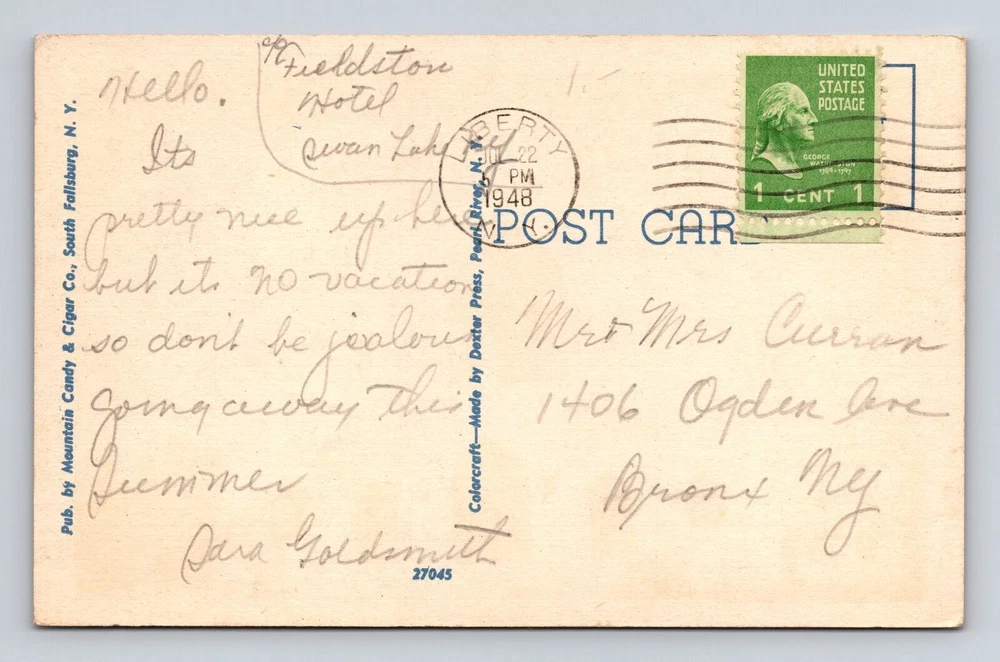 c/o Fieldston
Hotel
Swan Lake NY
Hello.
Its
pretty nice up here
but its no vacation
so don't be jealous
going away this
Summer
Sara Goldsmith
Pub. by Mountain Candy & Cigar Co., South Fallsburg, N. Y.
Colorcraft—Made by Dexter Press, Pearl River, N. Y.
27045
LIBERTY
JUL 22
PM
1948
N. Y.
UNITED
STATES
POSTAGE
GEORGE
WASHINGTON
1789-1797
1 CENT 1
POST CARD
Mr & Mrs Curran
1406 Ogden Ave
Bronx NY